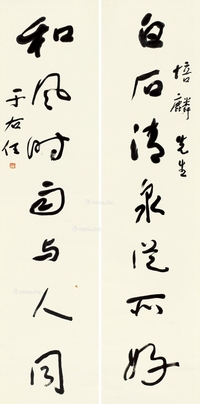 白石清泉从所好
培麟先生
和风时雨与人同
于右任